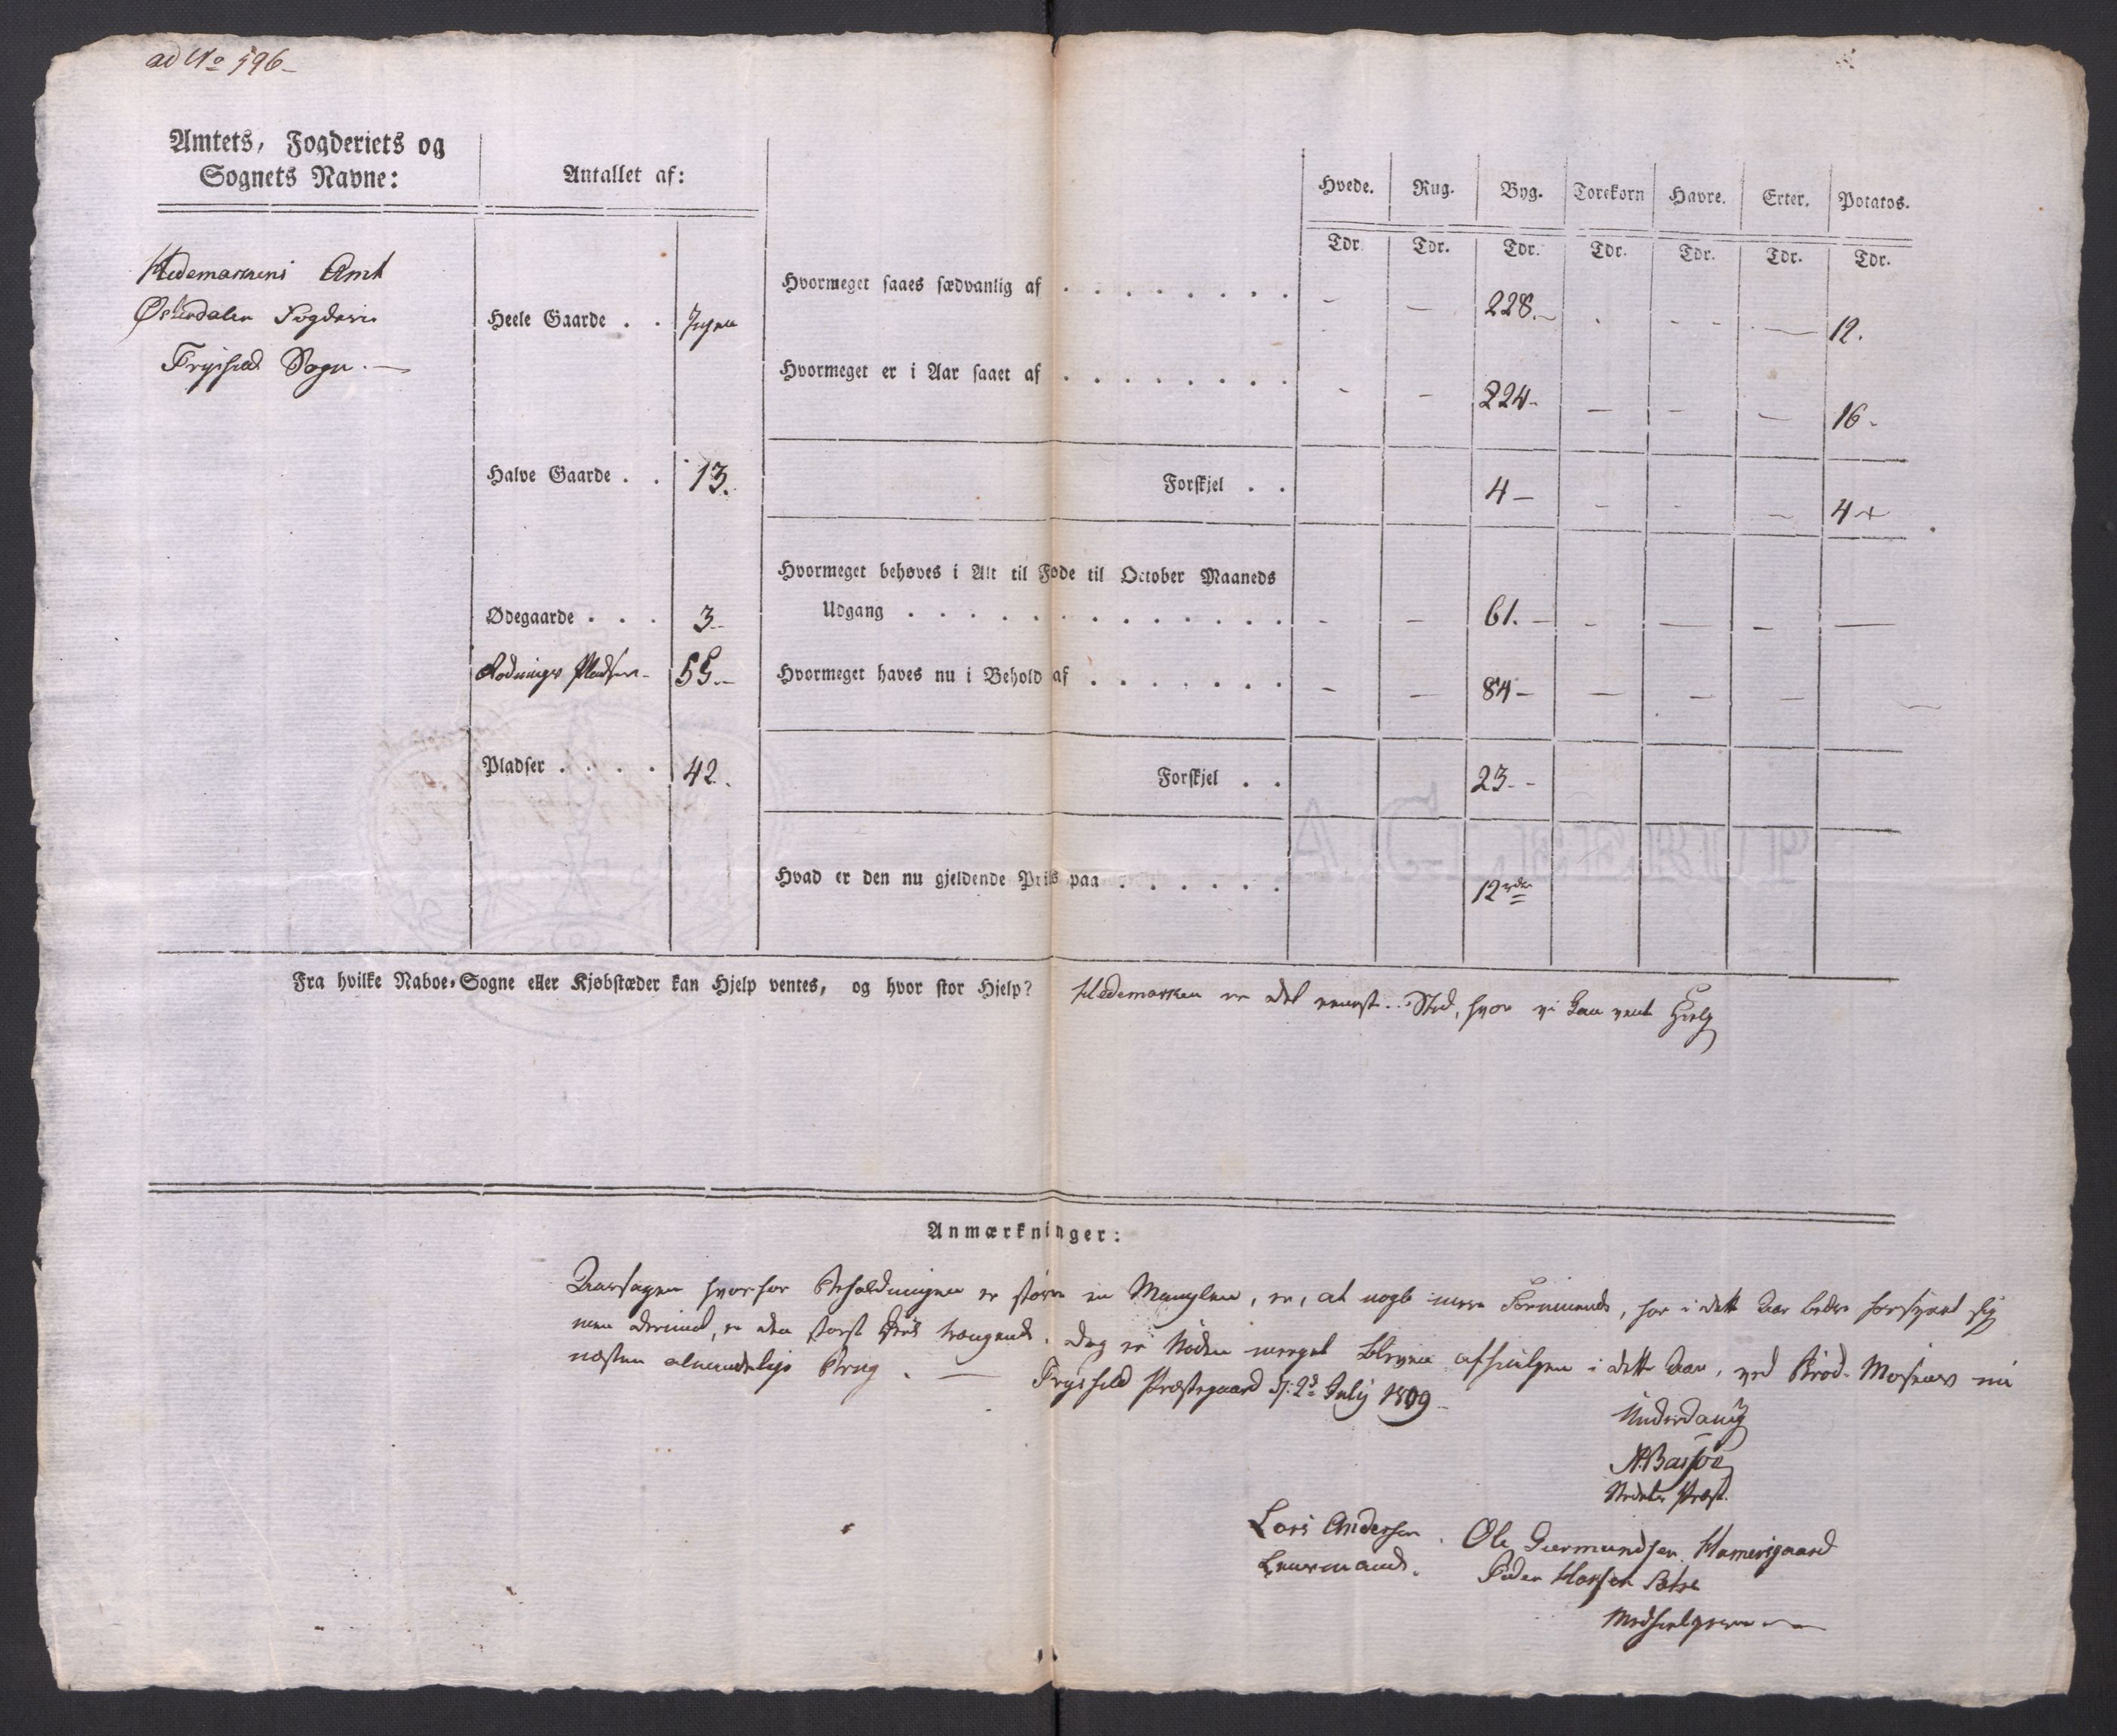 ad No 596-
Amtets, Fogderiets og
Sognets Navne:
Antallet af:
Hvede. Rug. Byg. Torekorn Havre. Erter. Potatos.
Tdr. Tdr. Tdr. Tdr. Tdr. Tdr. Tdr.
Hedemarkens Amt
Østerdalen Fogderie
Tryssild Sogn. —
Heele Gaarde . . Ingen
Halve Gaarde . . 13.
Ødegaarde . . . 3.
Rodnings Pladser - 55.-
Pladser . . . . 42.
Hvormeget saaes sædvanlig af . . . . . . . . - — 228.- . - - — 12.
Hvormeget er i Aar saaet af . . . . . . . . - - 224- — — — 16.
Forskjel . . 4 — - - — 4 +
Hvormeget behøves i Alt til Føde til October Maaneds
Udgang . . . . . . . . . . . . . - - 61. - - — — —
Hvormeget haves nu i Behold af . . . . . . . - — 84 — — — — —
Forskjel . . 23. -
Hvad er den nu gjeldende Priis paa . . . . . . 12 rdr
A G LEERUP
Fra hvilke Naboe-Sogne eller Kjøbstæder kan Hjelp ventes, og hvor stor Hjelp? Hedemarken er det eenest. Sted, hvor vi kan vente Hielp
Anmærkninger:
Aarsagen hvorfor Beholdningen er større en Manglen, er, at nogle mere Formuende, har i dette Aar bedre forsynet sig
men derimod, er den størst Deel trængende. Dog er Nøden meeget bleven afhiulpen i dette Aar, ved Brød-Mosens nu
næsten almindelige Brug. — Trysild Præstegaard d: 2d July 1809
Underdanig
A. Bassøe
Lars Andersen . Ole Giermundsen Hamersgaard
Lensmand. Peder Halsen Sætre
Medhielpere